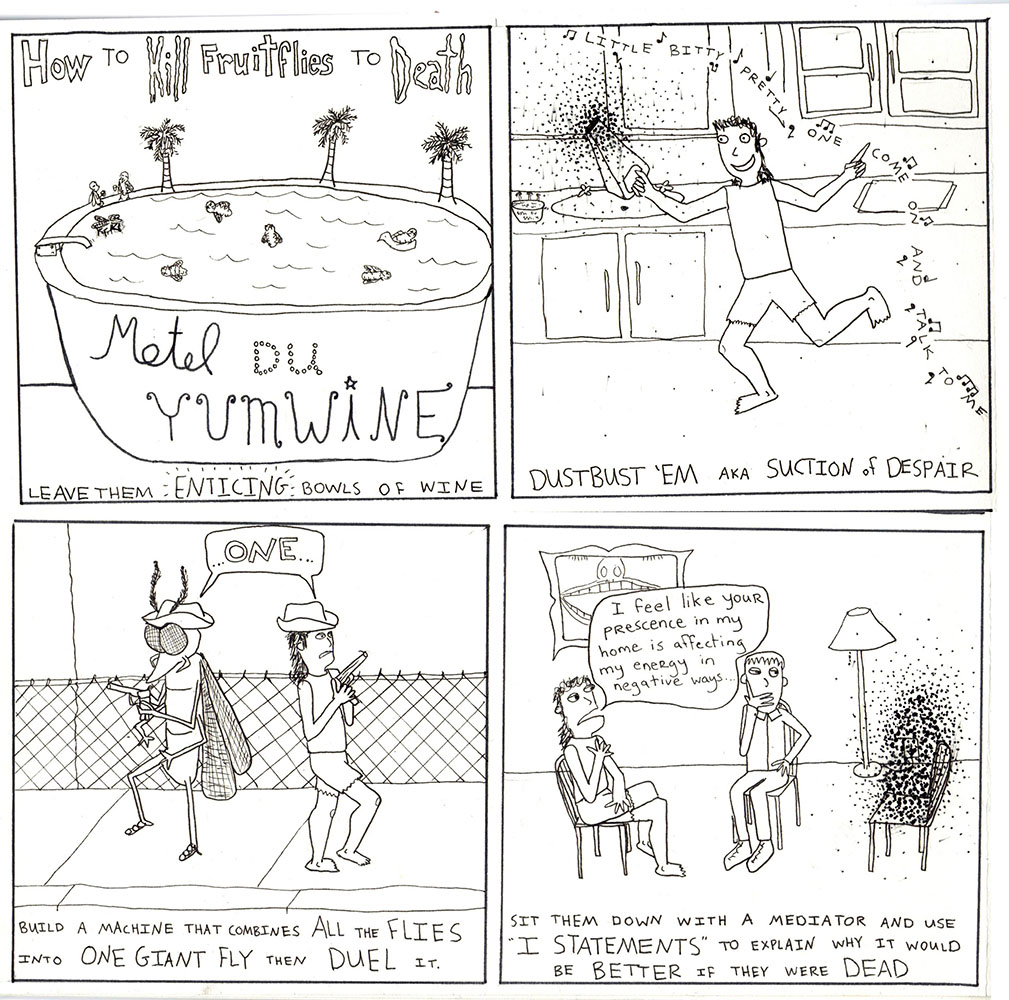 How to Kill Fruitflies to Death
Motel DU
YUMWINE
LEAVE THEM ENTICING BOWLS OF WINE
LITTLE BITTY PRETTY ONE COME ON AND TALK TO ME
DUSTBUST 'EM AKA SUCTION of DESPAIR
ONE...
BUILD A MACHINE THAT COMBINES ALL THE FLIES
INTO ONE GIANT FLY THEN DUEL IT.
I feel like your
prescence in my
home is affecting
my energy in
negative ways...
SIT THEM DOWN WITH A MEDIATOR AND USE
"I STATEMENTS" TO EXPLAIN WHY IT WOULD
BE BETTER IF THEY WERE DEAD